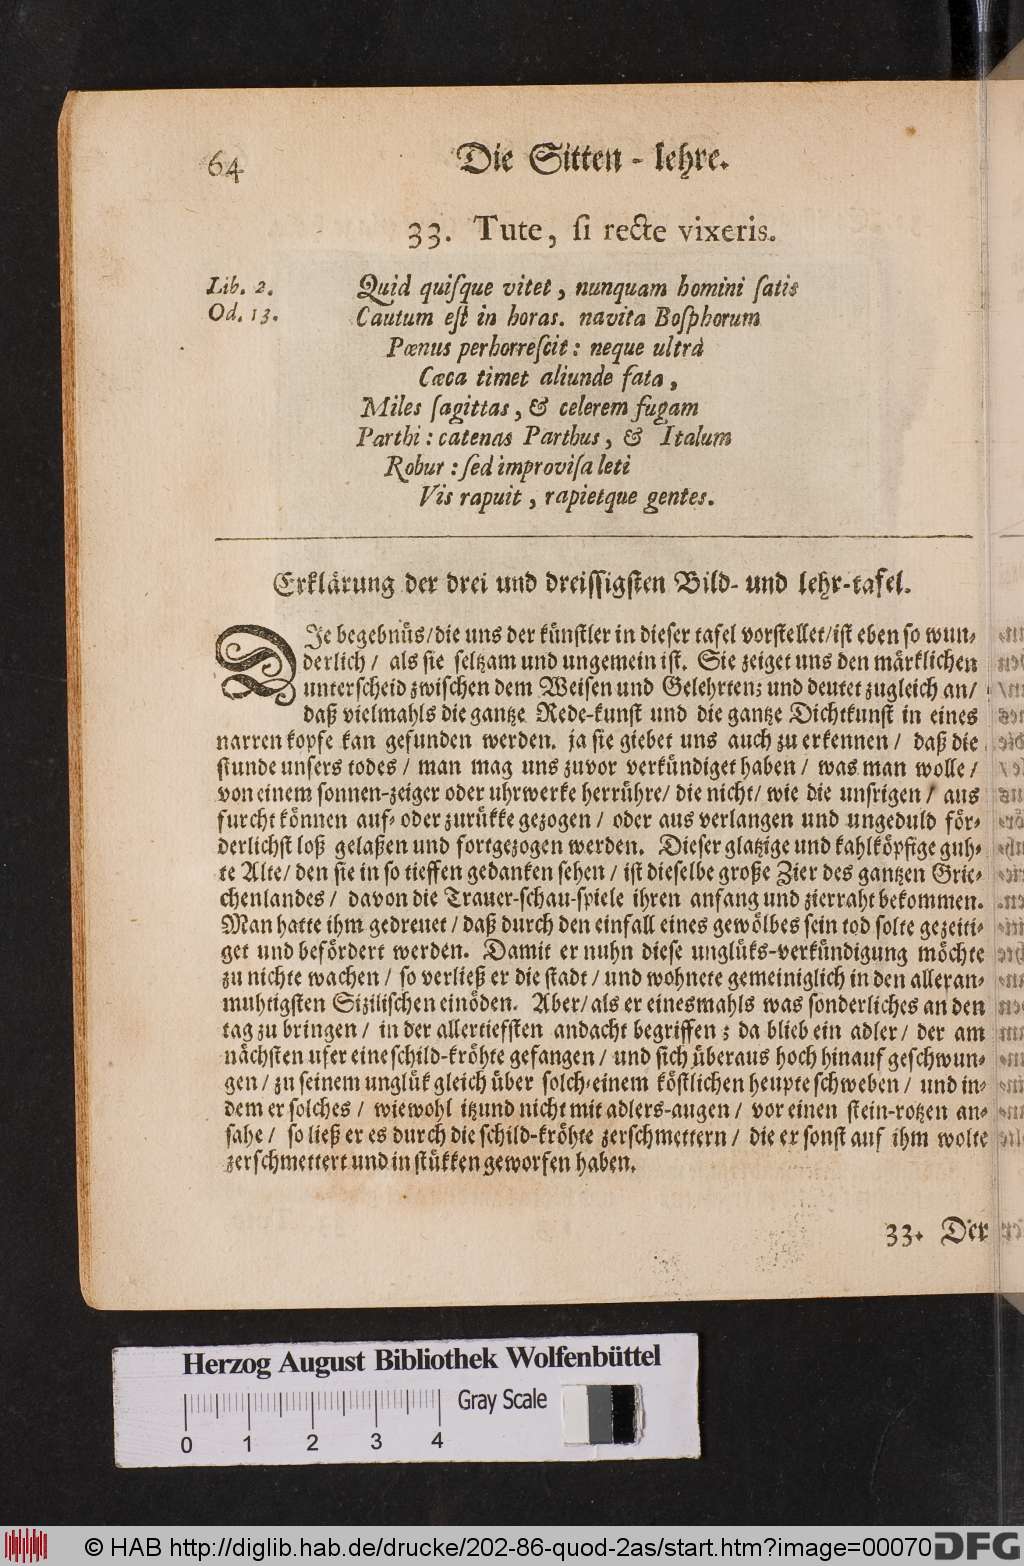 64
Die Sitten-lehre.
33. Tute, ſi recte vixeris.
Lib. 2.
Od. 13.
Quid quiſque vitet, nunquam homini ſatis
Cautum eſt in horas. navita Boſphorum
Pœnus perhorreſcit: neque ultrà
Cæca timet aliunde fata,
Miles ſagittas, & celerem fugam
Parthi: catenas Parthus, & Italum
Robur: ſed improviſa leti
Vis rapuit, rapietque gentes.
Erklärung der drei und dreiſſigſten Bild- und lehr-tafel.
DIe begebnüs/ die uns der künſtler in dieſer tafel vorſtellet/ iſt eben ſo wun-
derlich/ als ſie ſeltzam und ungemein iſt. Sie zeiget uns den märklichen
unterſcheid zwiſchen dem Weiſen und Gelehrten; und deutet zugleich an/
daß vielmahls die gantze Rede-kunſt und die gantze Dichtkunſt in eines
narren kopfe kan gefunden werden. ja ſie giebet uns auch zu erkennen/ daß die
ſtunde unſers todes/ man mag uns zuvor verkündiget haben/ was man wolle/
von einem ſonnen-zeiger oder uhrwerke herrühre/ die nicht/ wie die unſrigen/ aus
furcht können auf- oder zurükke gezogen/ oder aus verlangen und ungeduld för-
derlichſt loß gelaßen und fortgezogen werden. Dieſer glatzige und kahlköpfige guh-
te Alte/ den ſie in ſo tieffen gedanken ſehen/ iſt dieſelbe große Zier des gantzen Grie-
chenlandes/ davon die Trauer-ſchau-ſpiele ihren anfang und zierraht bekommen.
Man hatte ihm gedreuet/ daß durch den einfall eines gewölbes ſein tod ſolte gezeiti-
get und befördert werden. Damit er nuhn dieſe unglüks-verkündigung möchte
zu nichte wachen/ ſo verließ er die ſtadt/ und wohnete gemeiniglich in den alleran-
muhtigſten Siziliſchen einöden. Aber/ als er einesmahls was ſonderliches an den
tag zu bringen/ in der allertiefſten andacht begriffen; da blieb ein adler/ der am
nächſten ufer eine ſchild-kröhte gefangen/ und ſich überaus hoch hinauf geſchwun-
gen/ zu ſeinem unglük gleich über ſolch-einem köſtlichen heupte ſchweben/ und in-
dem er ſolches/ wiewohl itzund nicht mit adlers-augen/ vor einen ſtein-rotzen an-
ſahe/ ſo ließ er es durch die ſchild-kröhte zerſchmettern/ die er ſonſt auf ihm wolte
zerſchmettert und in ſtükken geworfen haben.
33. Der
Herzog August Bibliothek Wolfenbüttel
Gray Scale
0 1 2 3 4
© HAB http://diglib.hab.de/drucke/202-86-quod-2as/start.htm?image=00070
DFG